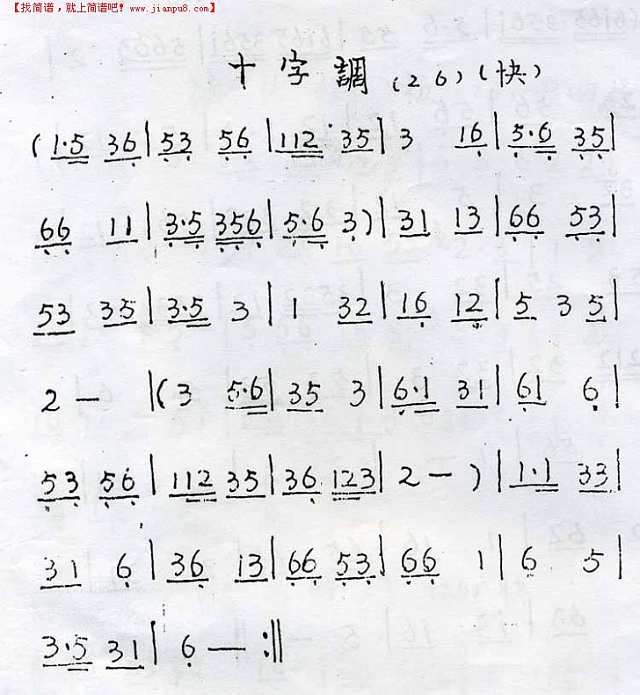 【找简谱，就上简谱吧！www.jianpu8.com】
十字調 (26) (快)
(1·5 36|53 56|112 35|3 16|5·6 35|
66 11|3·5 356|5·6 3)|31 13|66 53|
53 35|3·5 3|1 32|16 12|5 3 5|
2 — |(3 5·6|35 3|6·1 31|61 6|
53 56|112 35|36 123|2 — )|1·1 33|
31 6|36 13|66 53|66 1|6 5|
3·5 31|6 — :||